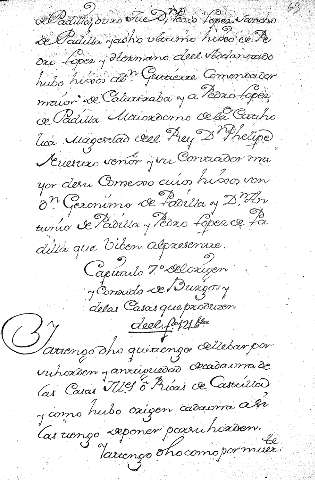 de Padilla, otro fue Dn. Pedro Lopez Sancho
de Padilla y a dho ultimo hixos de Pe
dro Lopez y Hermano del
hubo hixos a Dn. Gutierre Comendador
maior de Calatraba y a Pedro Lopez
de Padilla Maiordomo de la Catho
lica Magestad del Rey Dn. Phelipe
Nuestro señor y su Contador ma
yor de su Consexo cuios hixos son
Dn. Geronimo de Padilla y Dn. An
tonio de Padilla y Pedro Lopez de Pa
dilla que viben al presente.
Capitulo 7º del origen
y Condado de Burgos y
delas Casas que proceden
deel
Ya tengo dho que tengo de llebar por
su horden y antiguedad de cada una de
las Casas Illes ô Rias de Castilla
y como hubo origen cada una asi
las tengo de poner por su horden.
Ya tengo dho como por muerte